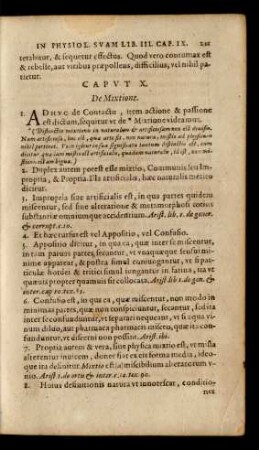 IN PHYSIOL. SVAM LIB. III. CAP. IX. 221
terabitur, & sequetur effectus. Quod vero contumax est
& rebelle, aut viribus præpollens, difficilius, vel nihil pa-
tietur.
CAPVT X.
De Mixtione.
1. ADHVC de Contactu, item actione & passione
est dictum, sequitur vt de Mixtione videamus.
(Distinctio mixtionis in naturalem & artificialem non est
Nam artificialis, hoc est, quæ arte fit, non natura, nihil ad physicum
nihil pertinet.
2. Duplex autem potest esse mixtio, Communis seu Im-
propria, & Propria. Illa artificialis, hæc naturalis merito
dicitur.
3. Impropria sive artificialis est, in qua partes quidem
miscentur, sed sine alteratione & metamorphosi totius
substantiæ omnium que accidentium. Arist. lib. 1. de gener.
& corrupt. c. 10.
4. Et hæc rursus est vel Appositio, vel Confusio.
5. Appositio dicitur, in qua ea, quæ inter se miscentur,
in tam parvas partes secantur, vt vnaquæque seorsim mi-
nime appareat, & postea simul coniungantur, vt si par-
ticulæ hordei & tritici simul iungantur in farina, ita vt
quasuis propter quamuis sit collocata. Arist. lib. 1. de gen. &
inter. cap. 10. tex. 85.
6. Confusio est, in qua ea, quæ miscentur, non modo in
minimas partes, quæ non conspiciantur, secantur, sed ita
inter se confunduntur, vt separari nequeant, vt si aqua
vino, aut pharmaca pharmacis misceri, quæ ita con-
funduntur, vt discerni non possint. Arist. ibi.
7. Propria autem & vera, sive physica mixtio est, vt mista
alterentur inuicem, donec sive ex eis forma media, ideo-
que ita definitur. Mixtio est miscibilium alteratorum v-
nio. Arist. 1. de ortu & inter. c. 10. tex. 90.
8. Huius definitionis natura vt innotescat, conditio-
nes